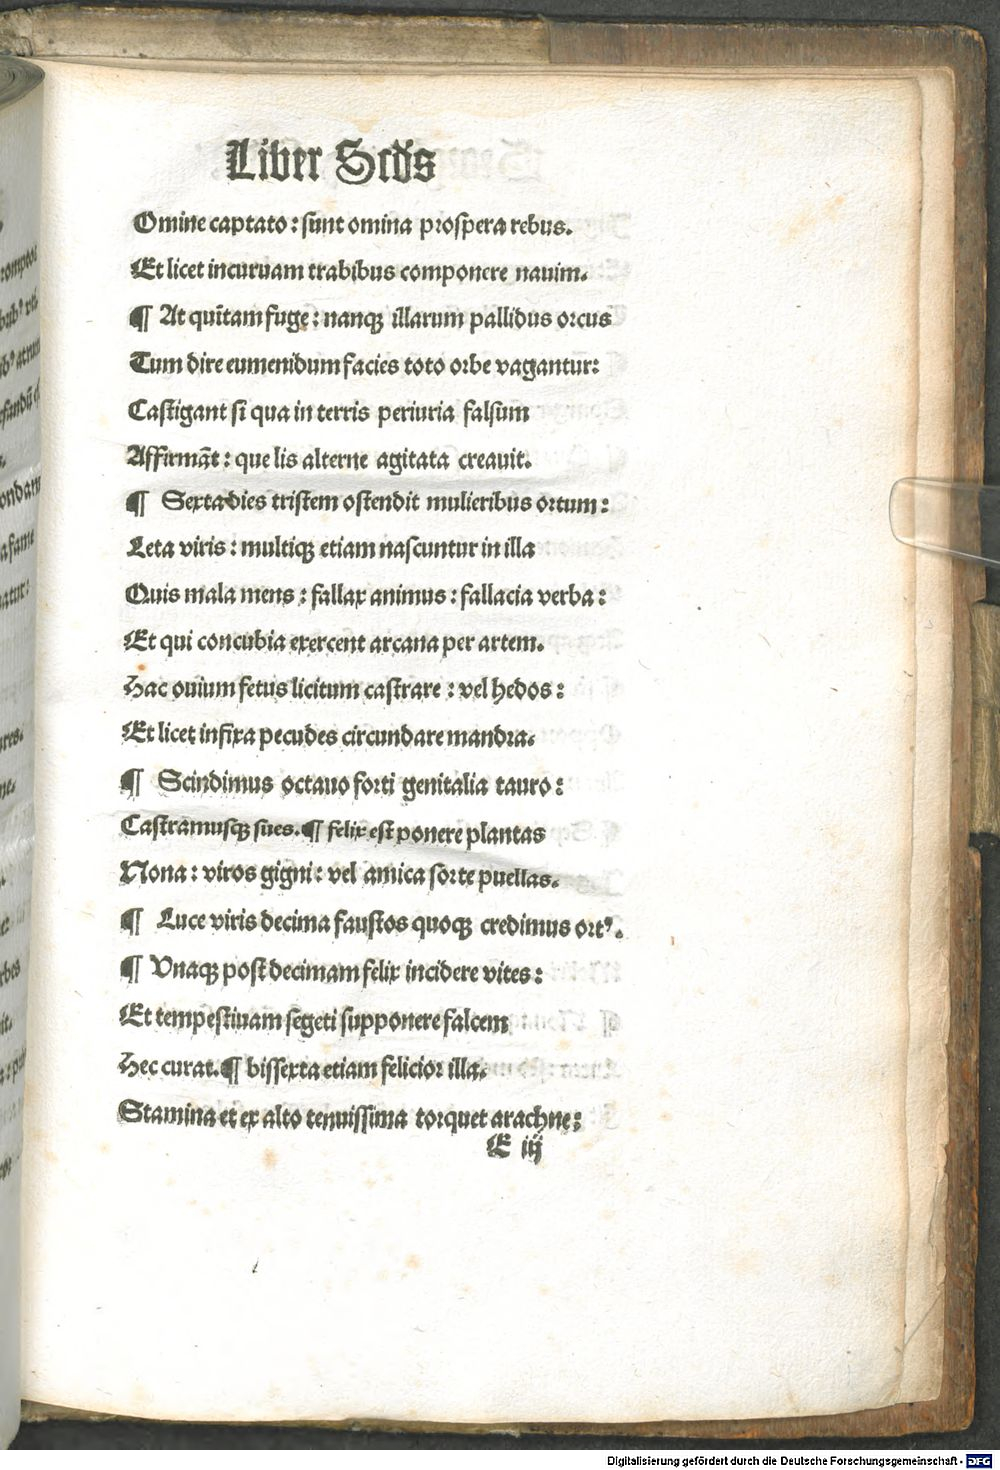 Liber Scďs
Omine captato : sunt omina prospera rebus.
Et licet incuruam trabibus componere nauim.
¶ At quītam fuge : nanqꝫ illarum pallidus orcus
Tum dire eumenidum facies toto orbe vagantur:
Castigant si qua in terris periuria falsum
Affirmāt : que lis alterne agitata creauit.
¶ Sexta dies tristem ostendit mulieribus ortum :
Leta viris : multiqꝫ etiam nascuntur in illa
Quis mala mens : fallax animus : fallacia verba :
Et qui concubia exercent arcana per artem.
Hac ouium fetus licitum castrare : vel hedos :
Et licet infixa pecudes circundare mandra.
¶ Scindimus octauo forti genitalia tauro :
Castramusqꝫ sues. ¶ felix est ponere plantas
Nona : viros gigni : vel amica sorte puellas.
¶ Luce viris decima faustos quoqꝫ credimus ortꝰ.
¶ Vnaqꝫ post decimam felix incidere vites :
Et tempestiuam segeti supponere falcem
Hec curat. ¶ bissexta etiam felicior illa.
Stamina et ex alto tenuissima torquet arachne :
E iij
Digitalisierung gefördert durch die Deutsche Forschungsgemeinschaft - DFG